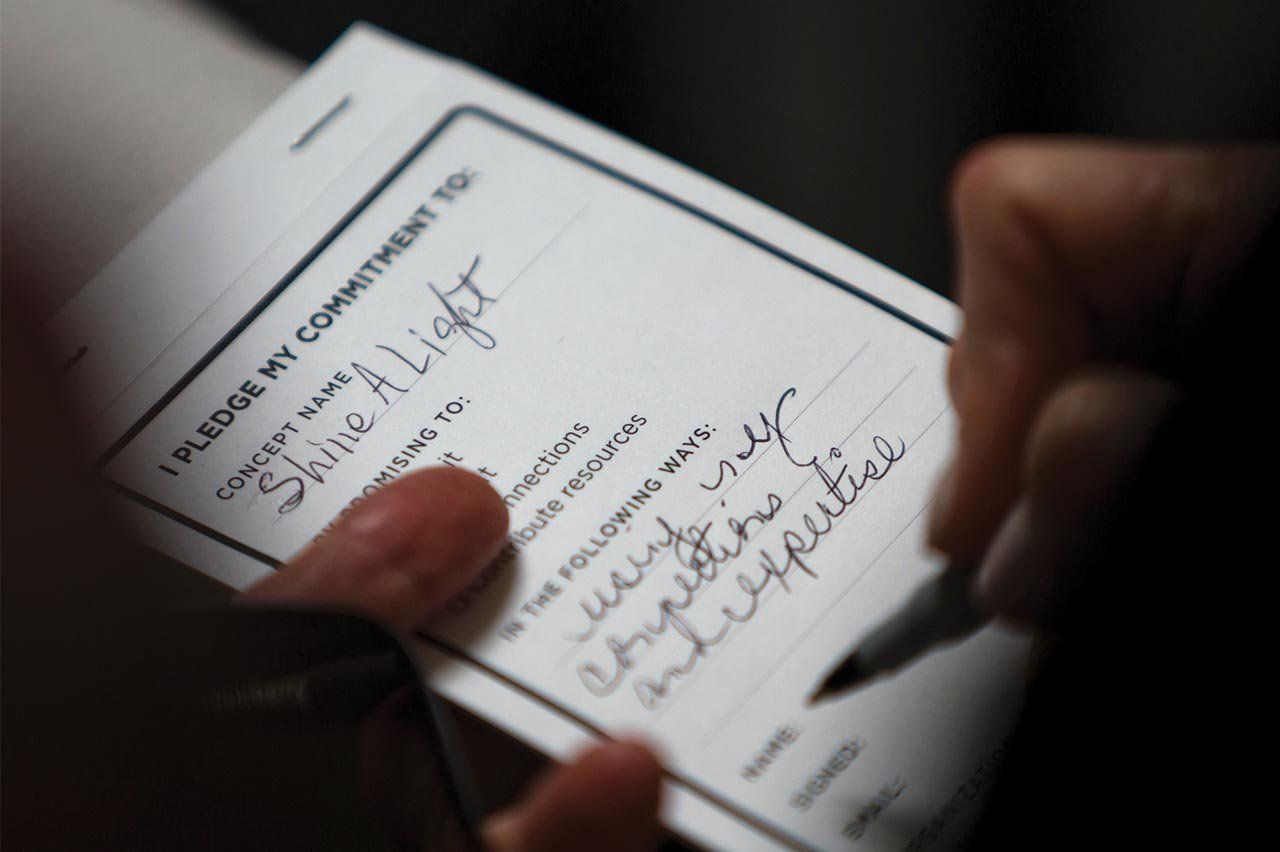 I PLEDGE MY COMMITMENT TO:
CONCEPT NAME Shine A Light
PROMISING TO:
it
nnections
contribute resources
IN THE FOLLOWING WAYS:
using my
connections
and expertise
NAME:
SIGNED:
EMAIL: